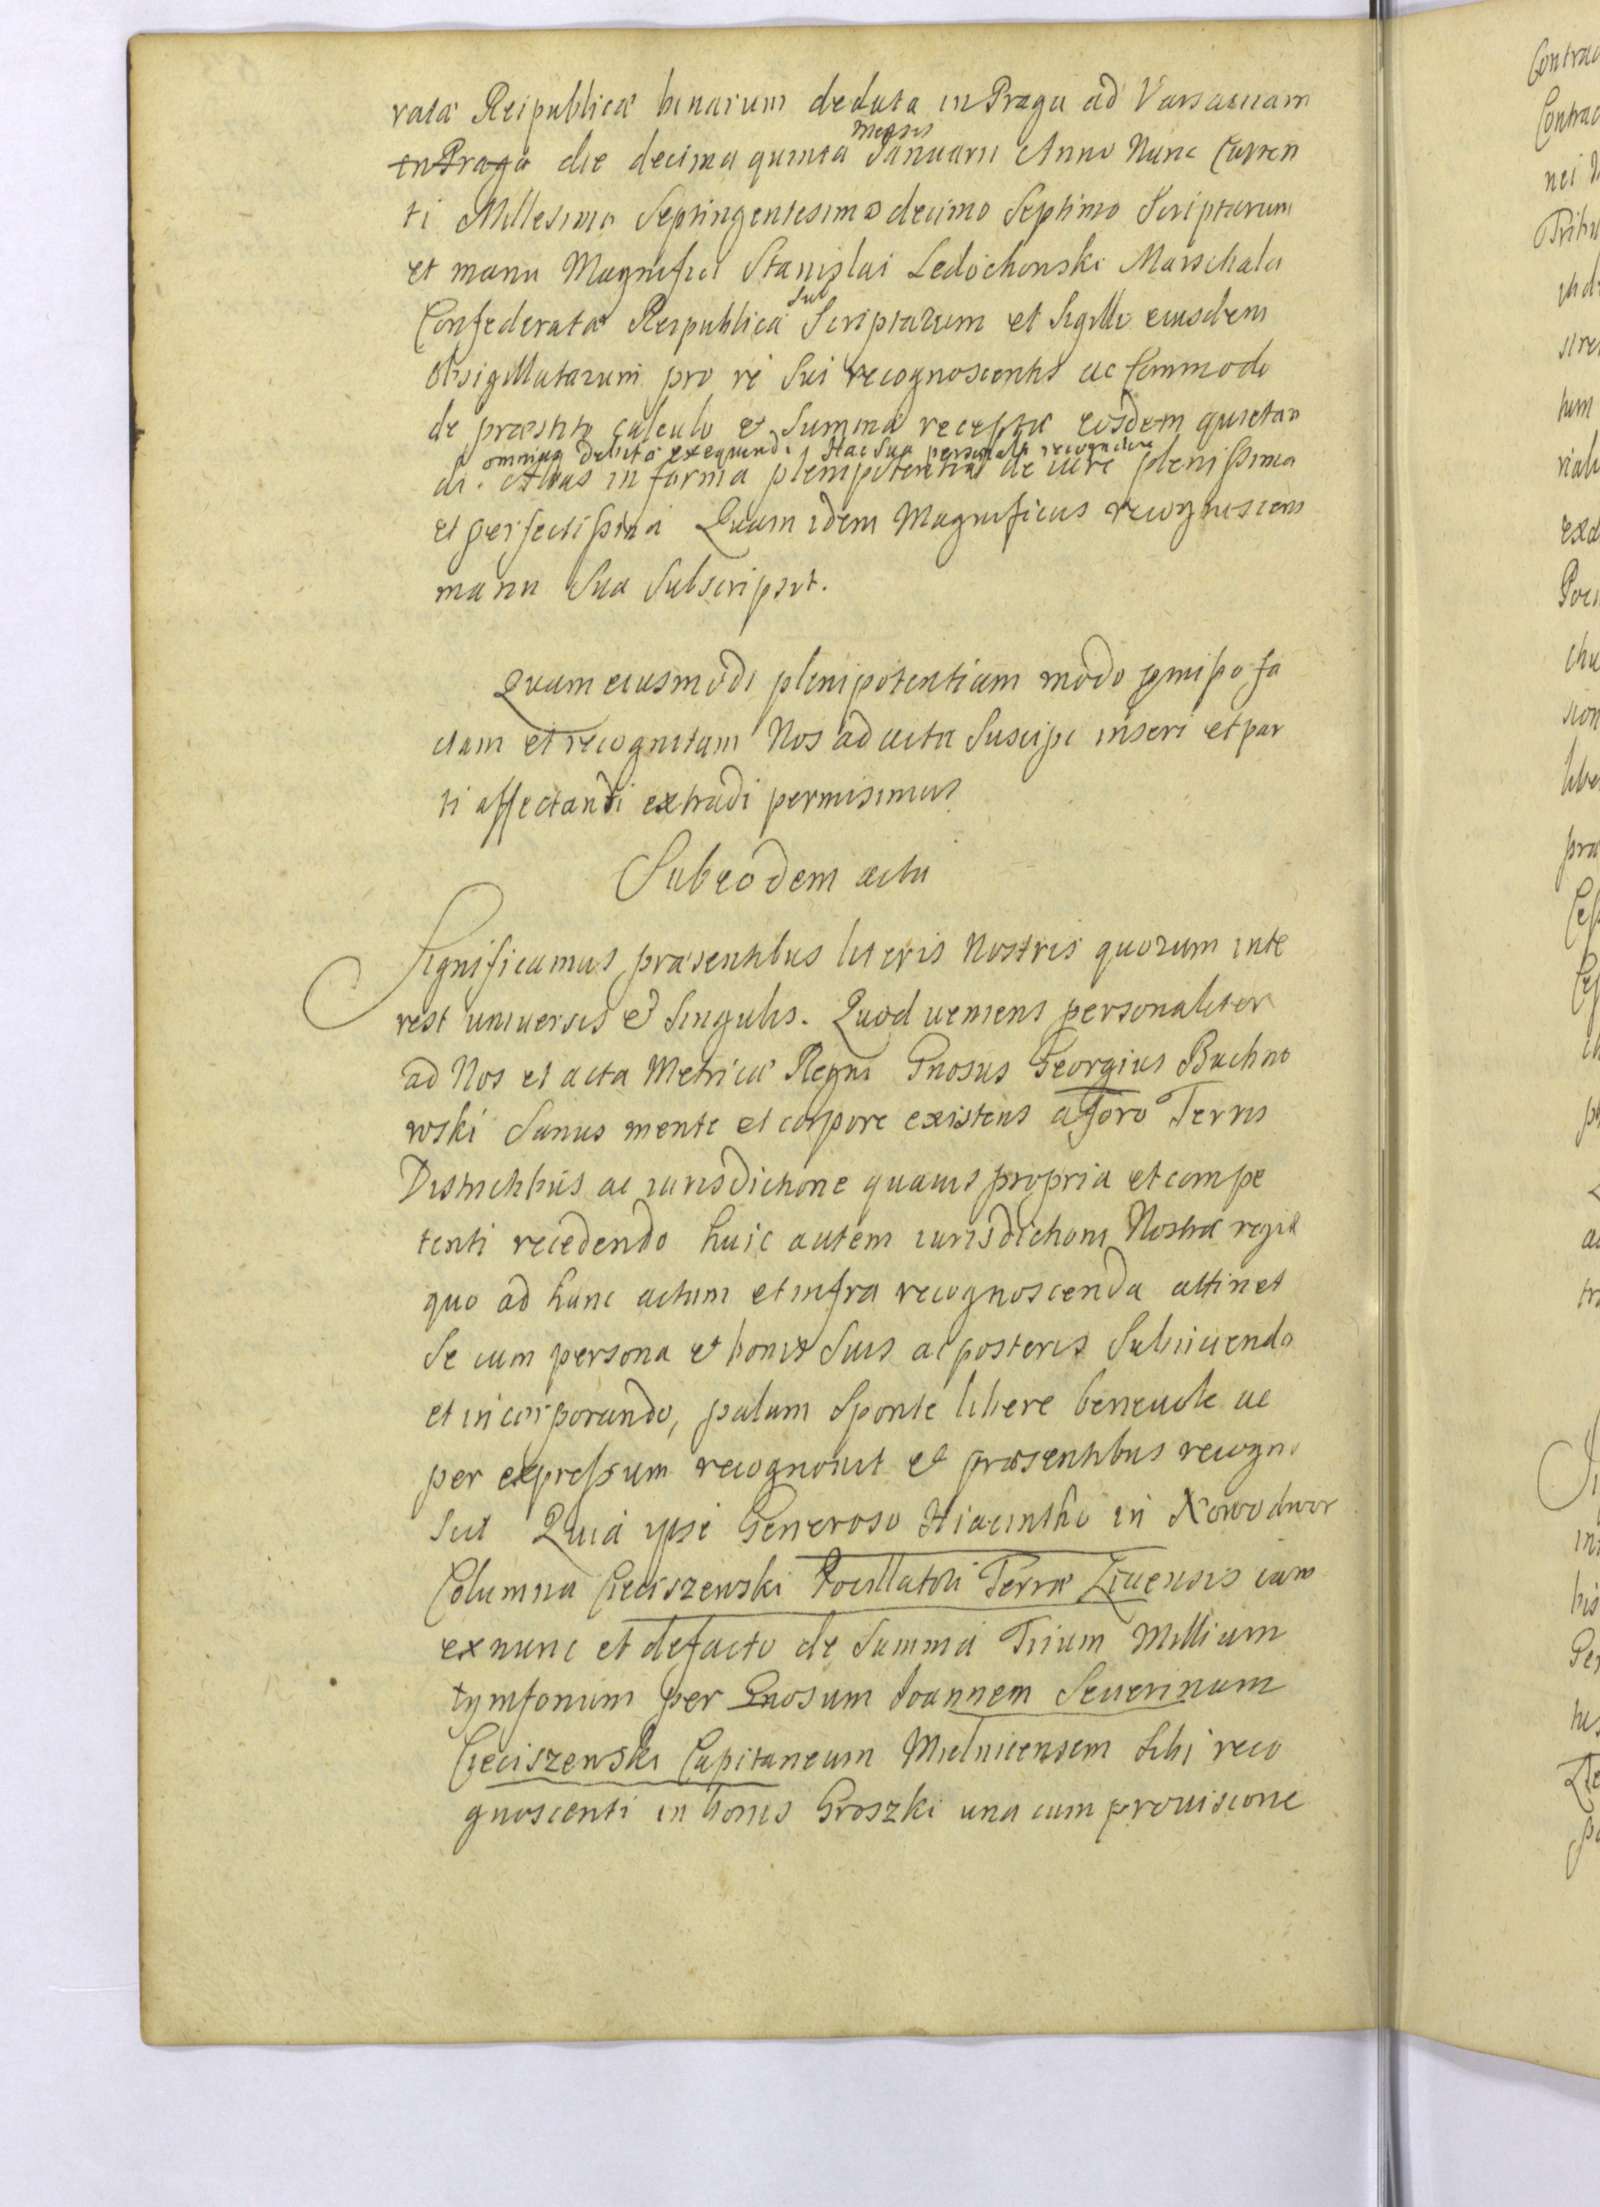 ratæ Reipublicæ binarum de data in Praga ad Varsauiam
in Praga die decima quinta mensis Januarii Anno Nunc Curren
ti Millesimo Septingentesimo decimo Septimo Scriptarum
et manu Magnifici Stanislai Ledochowski Marschalci
Confederatæ Reipublicæ Sub Scriptarum et Sigillo eiusdem
obsigillatarum pro re Sui recognoscentis ac Commodo
de præstito calculo et Summa recepta eosdem quietan
omniaq debita exequendi, Hac Sua personali recognitione
di. in forma plenipotentiæ de iure plenissima
et perfectissima Quam idem Magnificus recognoscens
manu Sua Subscripsit.
Quam eiusmodi plenipotentiam modo pmisso fa
ctam et recognitam Nos ad acta Suscipi inseri et par
ti affectanti extradi permisimus
Sub eodem actu
Significamus præsentibus literis Nostris quorum inte
rest uniuersis et Singulis. Quod ueniens personaliter
ad Nos et acta Metricæ Regni Gnosus Georgius Buchno
wski Sanus mente et corpore existens a foro Terris
Districtibus ac iurisdictione quauis propria et compe
tenti recedendo huic autem iurisdictioni Nostræ regiæ
quo ad hunc actum et infra recognoscenda attinet
Se cum persona et bonis Suis ac posteris Subiiciendo
et incorporando, palam Sponte libere beneuole ac
per expressum recognouit et præsentibus recogno
scit Quia ipse Generoso Hiacintho in Nowodwor
Columna Cieciszewski Pocillatori Terræ Liuensis iam
ex nunc et de facto de Summa Trium Millium
tymfonum per Gnosum Joannem Seuerinum
Cieciszewski Capitaneum Mielnicensem Sibi reco
gnoscenti in bonis Groszki una cum prouisione
Contrac
Contrac
nei